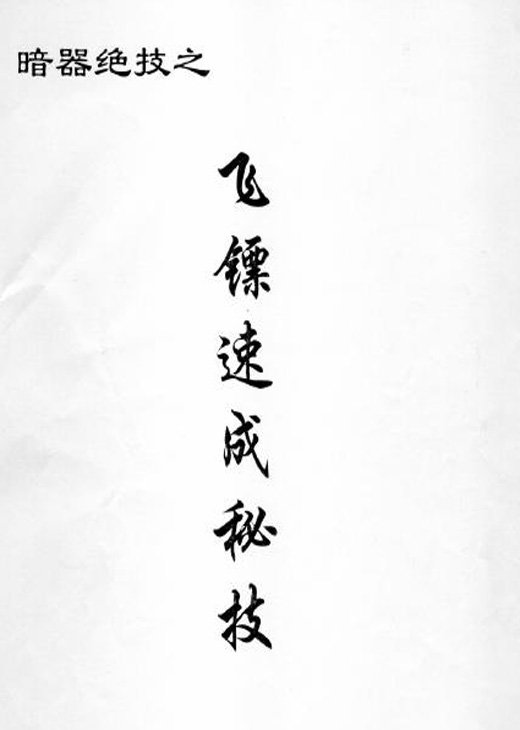 暗器绝技之
飞镖速成秘技